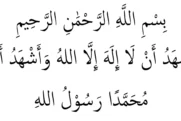 بِسْمِ اللَّهِ الرَّحْمَٰنِ الرَّحِيمِ
أَنْ لَا إِلَهَ إِلَّا اللهُ وَأَشْهَدُ
مُحَمَّدًا رَسُوْلُ اللهِ